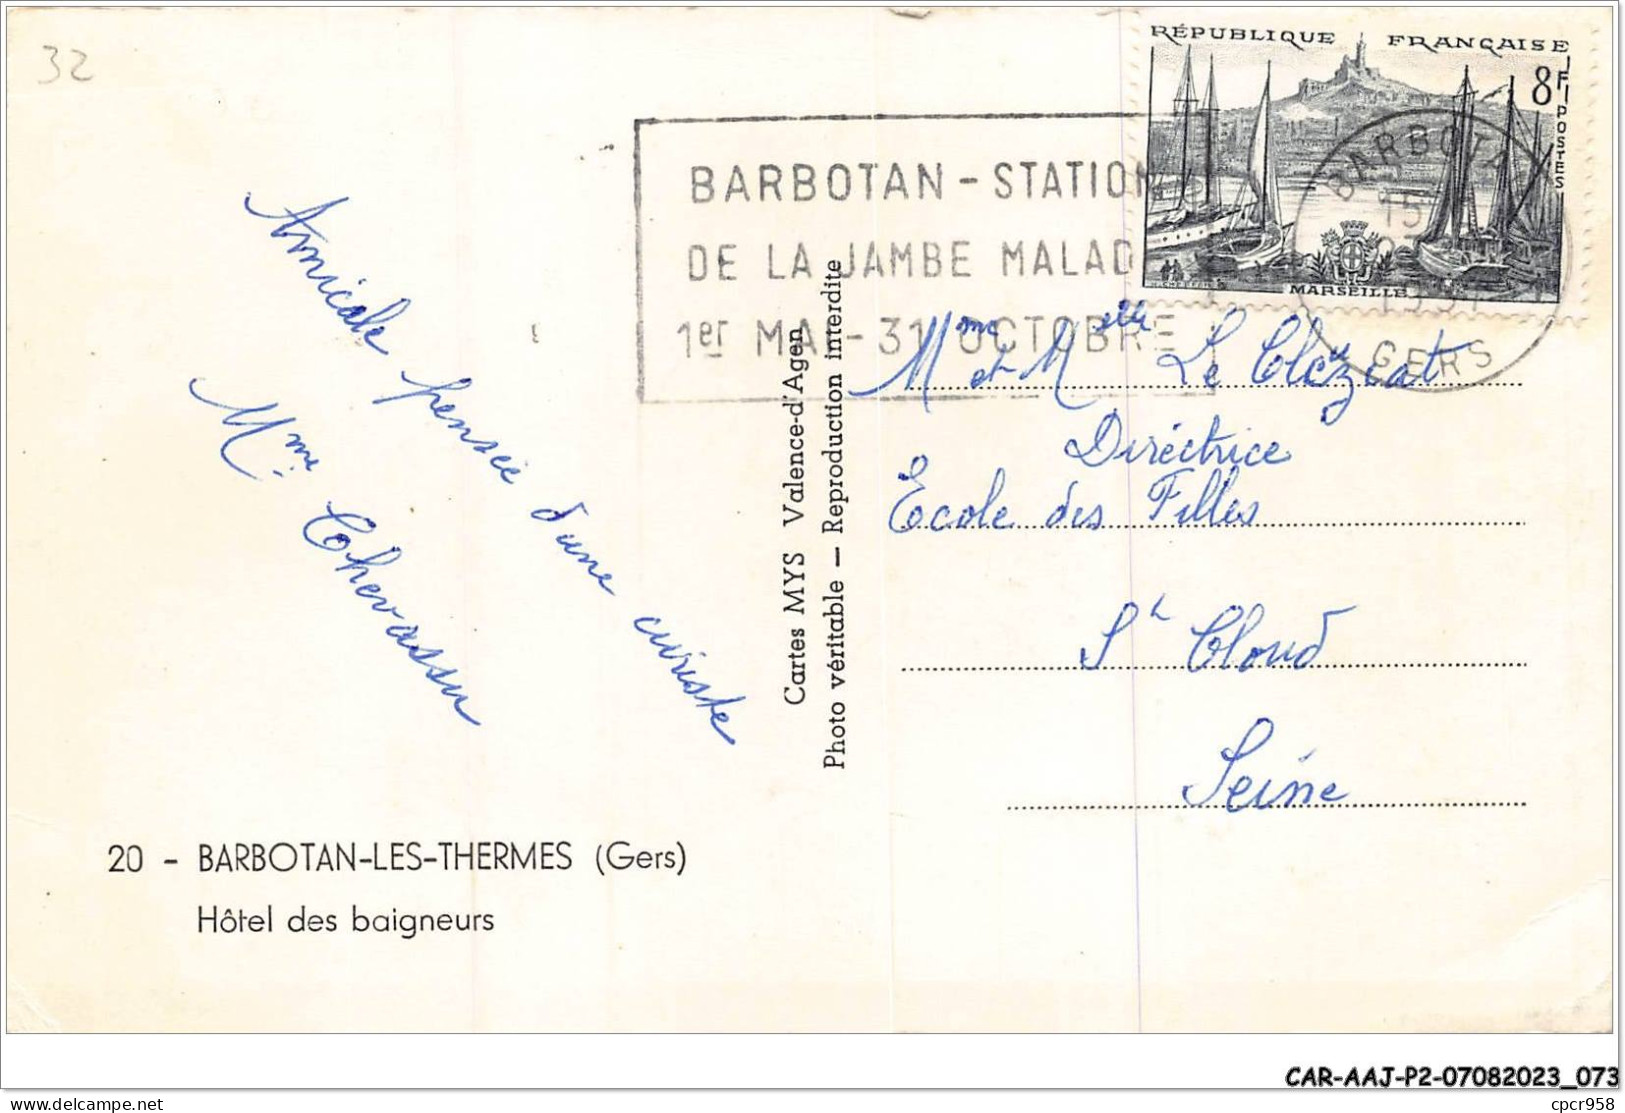 32
RÉPUBLIQUE FRANÇAISE
8F
POSTES
MARSEILLE
BARBOTAN - STATION
DE LA JAMBE MALAD
1er MAI - 31 OCTOBRE
BARBOTA
15
GERS
Amicale pensée d'une curiste
Mme Chevassu
Cartes MYS Valence-d'Agen
Photo véritable — Reproduction interdite
Mme et Melle Le Clézeat
Diréctrice
Ecole des Filles
St Cloud
Seine
20 - BARBOTAN-LES-THERMES (Gers)
Hôtel des baigneurs
CAR-AAJ-P2-07082023_073
delcampe.net
cpcr958